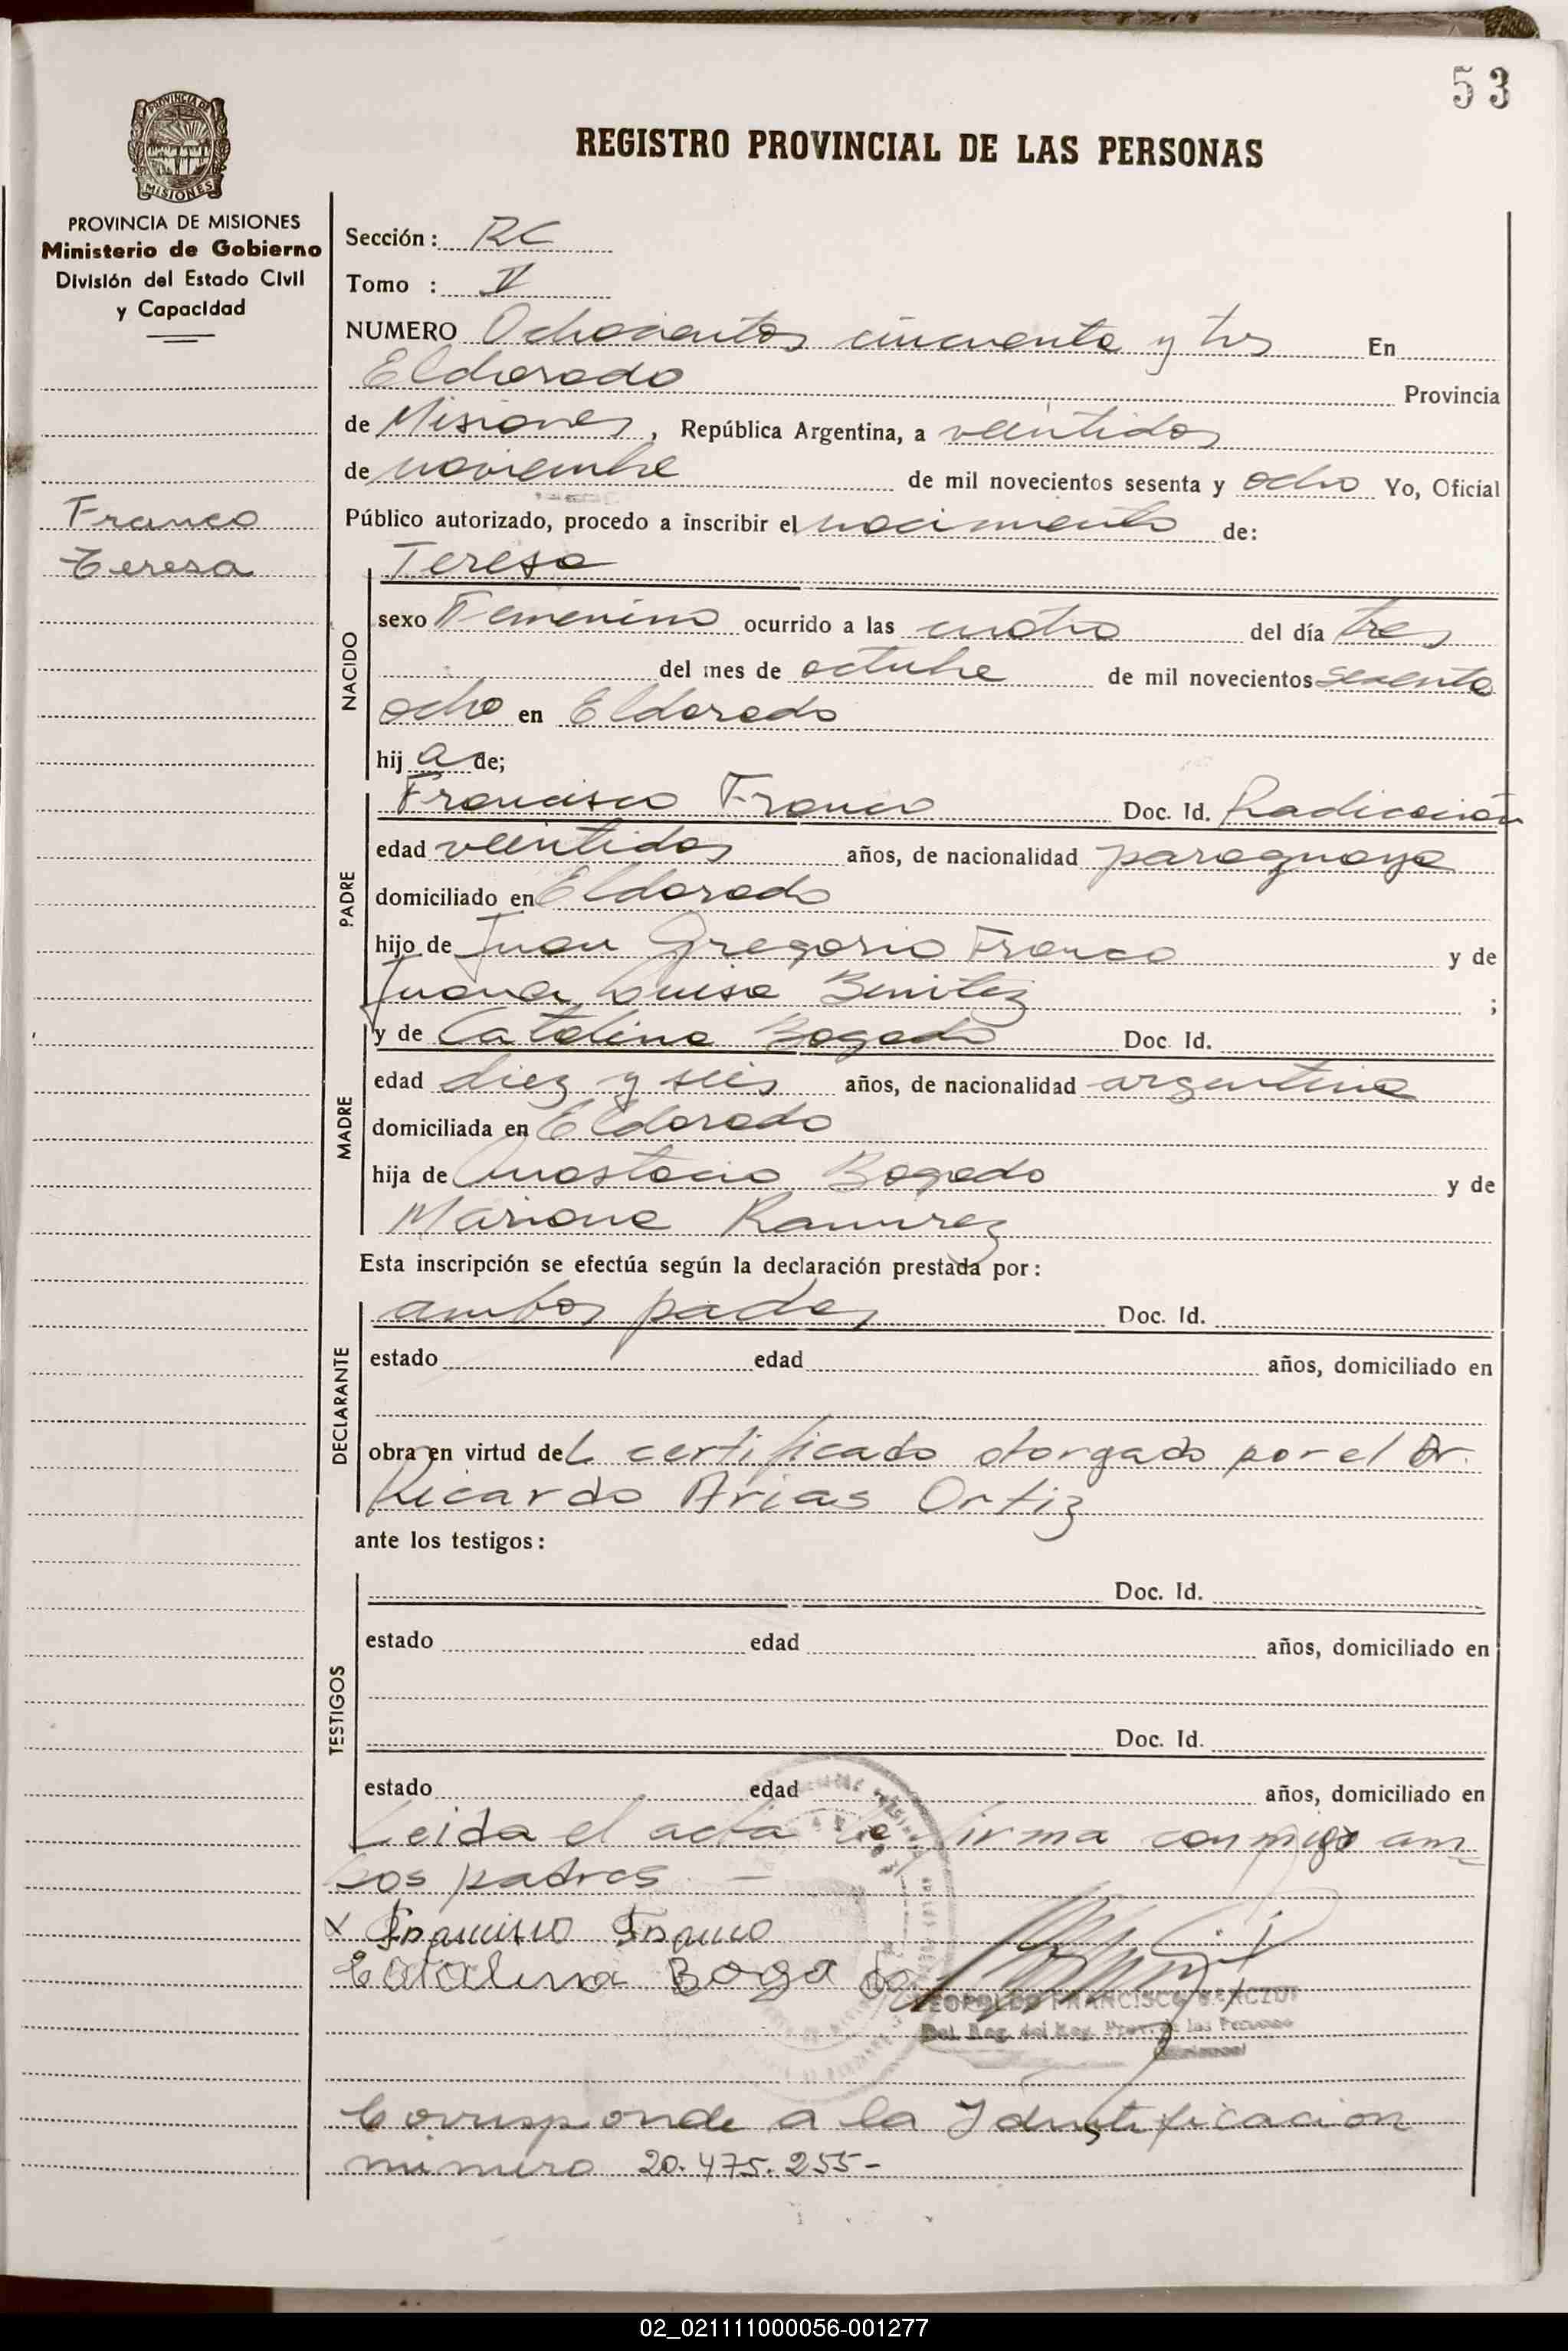 53
REGISTRO PROVINCIAL DE LAS PERSONAS
PROVINCIA DE MISIONES
PROVINCIA DE MISIONES
Ministerio de Gobierno
División del Estado Civil
y Capacidad
Franco
Teresa
Sección: RC
Tomo : V
NUMERO Ochocientos cincuenta y tres En
Eldorado Provincia
de Misiones, República Argentina, a veintidos
de noviembre de mil novecientos sesenta y ocho Yo, Oficial
Público autorizado, procedo a inscribir el nacimiento de:
Teresa
NACIDO
sexo Femenino ocurrido a las cuatro del día tres
del mes de octubre de mil novecientos sesenta
ocho en Eldorado
hij a de;
PADRE
Francisco Franco Doc. Id. Radicación
edad veintidos años, de nacionalidad paraguaya
domiciliado en Eldorado
hijo de Juan Gregorio Franco y de
Juana Luisa Benitez ;
MADRE
y de Catalina Bogado Doc. Id.
edad diez y seis años, de nacionalidad argentina
domiciliada en Eldorado
hija de Anastacio Bogado y de
Mariana Ramirez
Esta inscripción se efectúa según la declaración prestada por:
DECLARANTE
ambos padres Doc. Id.
estado edad años, domiciliado en
obra en virtud del certificado otorgado por el Dr.
Ricardo Arias Ortiz
ante los testigos:
TESTIGOS
Doc. Id.
estado edad años, domiciliado en
Doc. Id.
estado edad años, domiciliado en
Leida el acta la firma conmigo am=
bos padres. —
x Francisco Franco
Catalina Bogado
LEOPOLDO FRANCISCO
Del. Reg. del Reg. Prov. de las Personas
Corresponde a la Identificacion
numero 20.475.255-
02_021111000056-001277